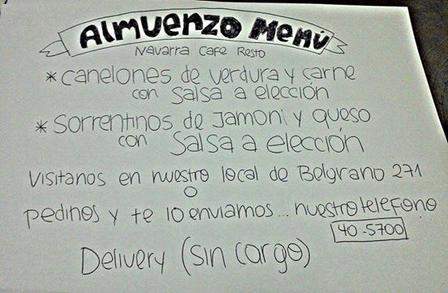 Almuerzo Menú
Navarra Cafe Resto
*canelones de verdura y carne
con Salsa a elección
*Sorrentinos de Jamon y queso
con Salsa a elección
Visitanos en nuestro local de Belgrano 271
o
pedinos y te lo enviamos... nuestro telefono
40-5700
Delivery (Sin cargo)